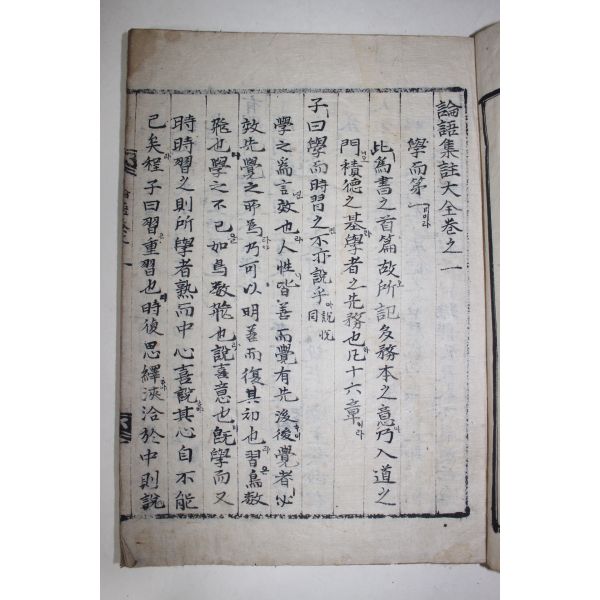 論語集註大全卷之一
學而第一
此爲書之首篇故所記多務本之意乃入道之
門積德之基學者之先務也凡十六章
子曰學而時習之不亦說乎 說悅同
學之爲言效也人性皆善而覺有先後後覺者必
效先覺之所爲乃可以明善而復其初也習鳥數
飛也學之不已如鳥數飛也說喜意也旣學而又
時時習之則所學者熟而中心喜說其心自不能
已矣程子曰習重習也時復思繹浹洽於中則說